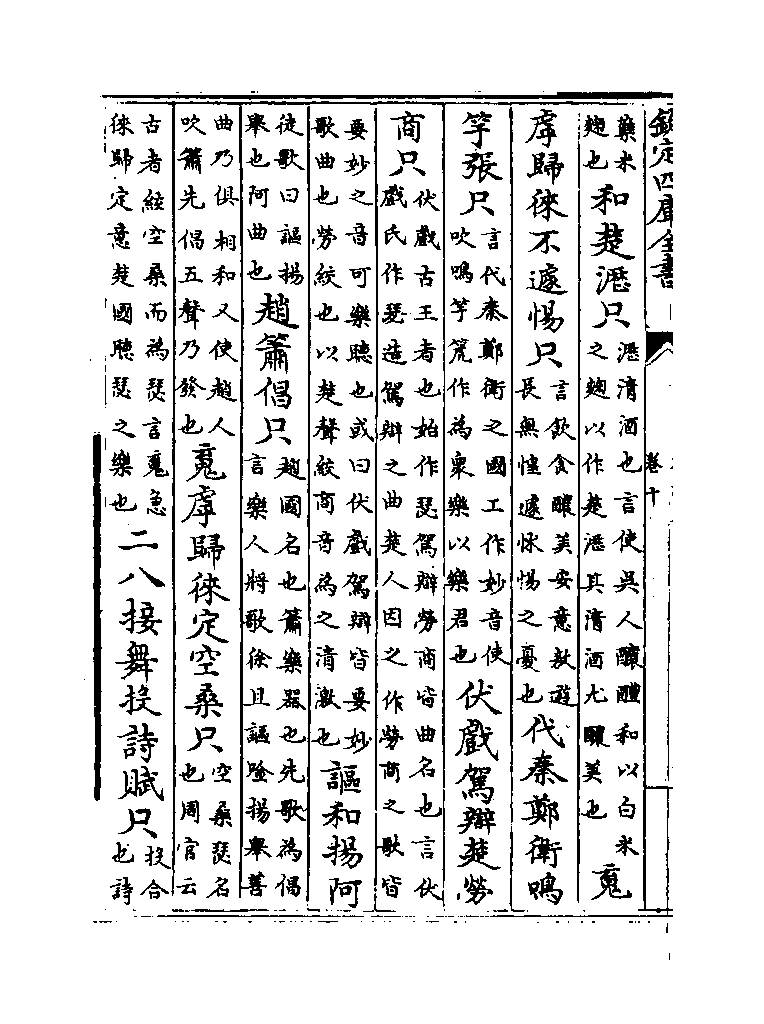 欽定四庫全書 卷十
蘗米麴也和楚瀝只瀝清酒也言使吳人醲醴和以白米之麴以作楚瀝其清酒尤醲美也魂
虖歸徠不遽惕只言飲食醲美安意遨遊長無惶遽怵惕之憂也代秦鄭衛鳴
竽張只言代秦鄭衛之國工作妙音使吹鳴竽箎作為衆樂以樂君也伏戲駕辯楚勞
商只伏戲古王者也始作瑟駕辯勞商皆曲名也言伏戲氏作瑟造駕辯之曲楚人因之作勞商之歌皆
要妙之音可樂聽也或曰伏戲駕辯皆要妙歌曲也勞絞也以楚聲絞商音為之清激也謳和揚阿
徒歌曰謳揚舉也阿曲也趙簫倡只趙國名也簫樂器也先歌為倡言樂人將歌徐且謳吟揚舉善
曲乃俱相和又使趙人吹簫先倡五聲乃發也魂虖歸徠定空桑只空桑瑟名也周官云
古者絃空桑而為瑟言魂急徠歸定意楚國聽瑟之樂也二八接舞投詩賦只投合也詩